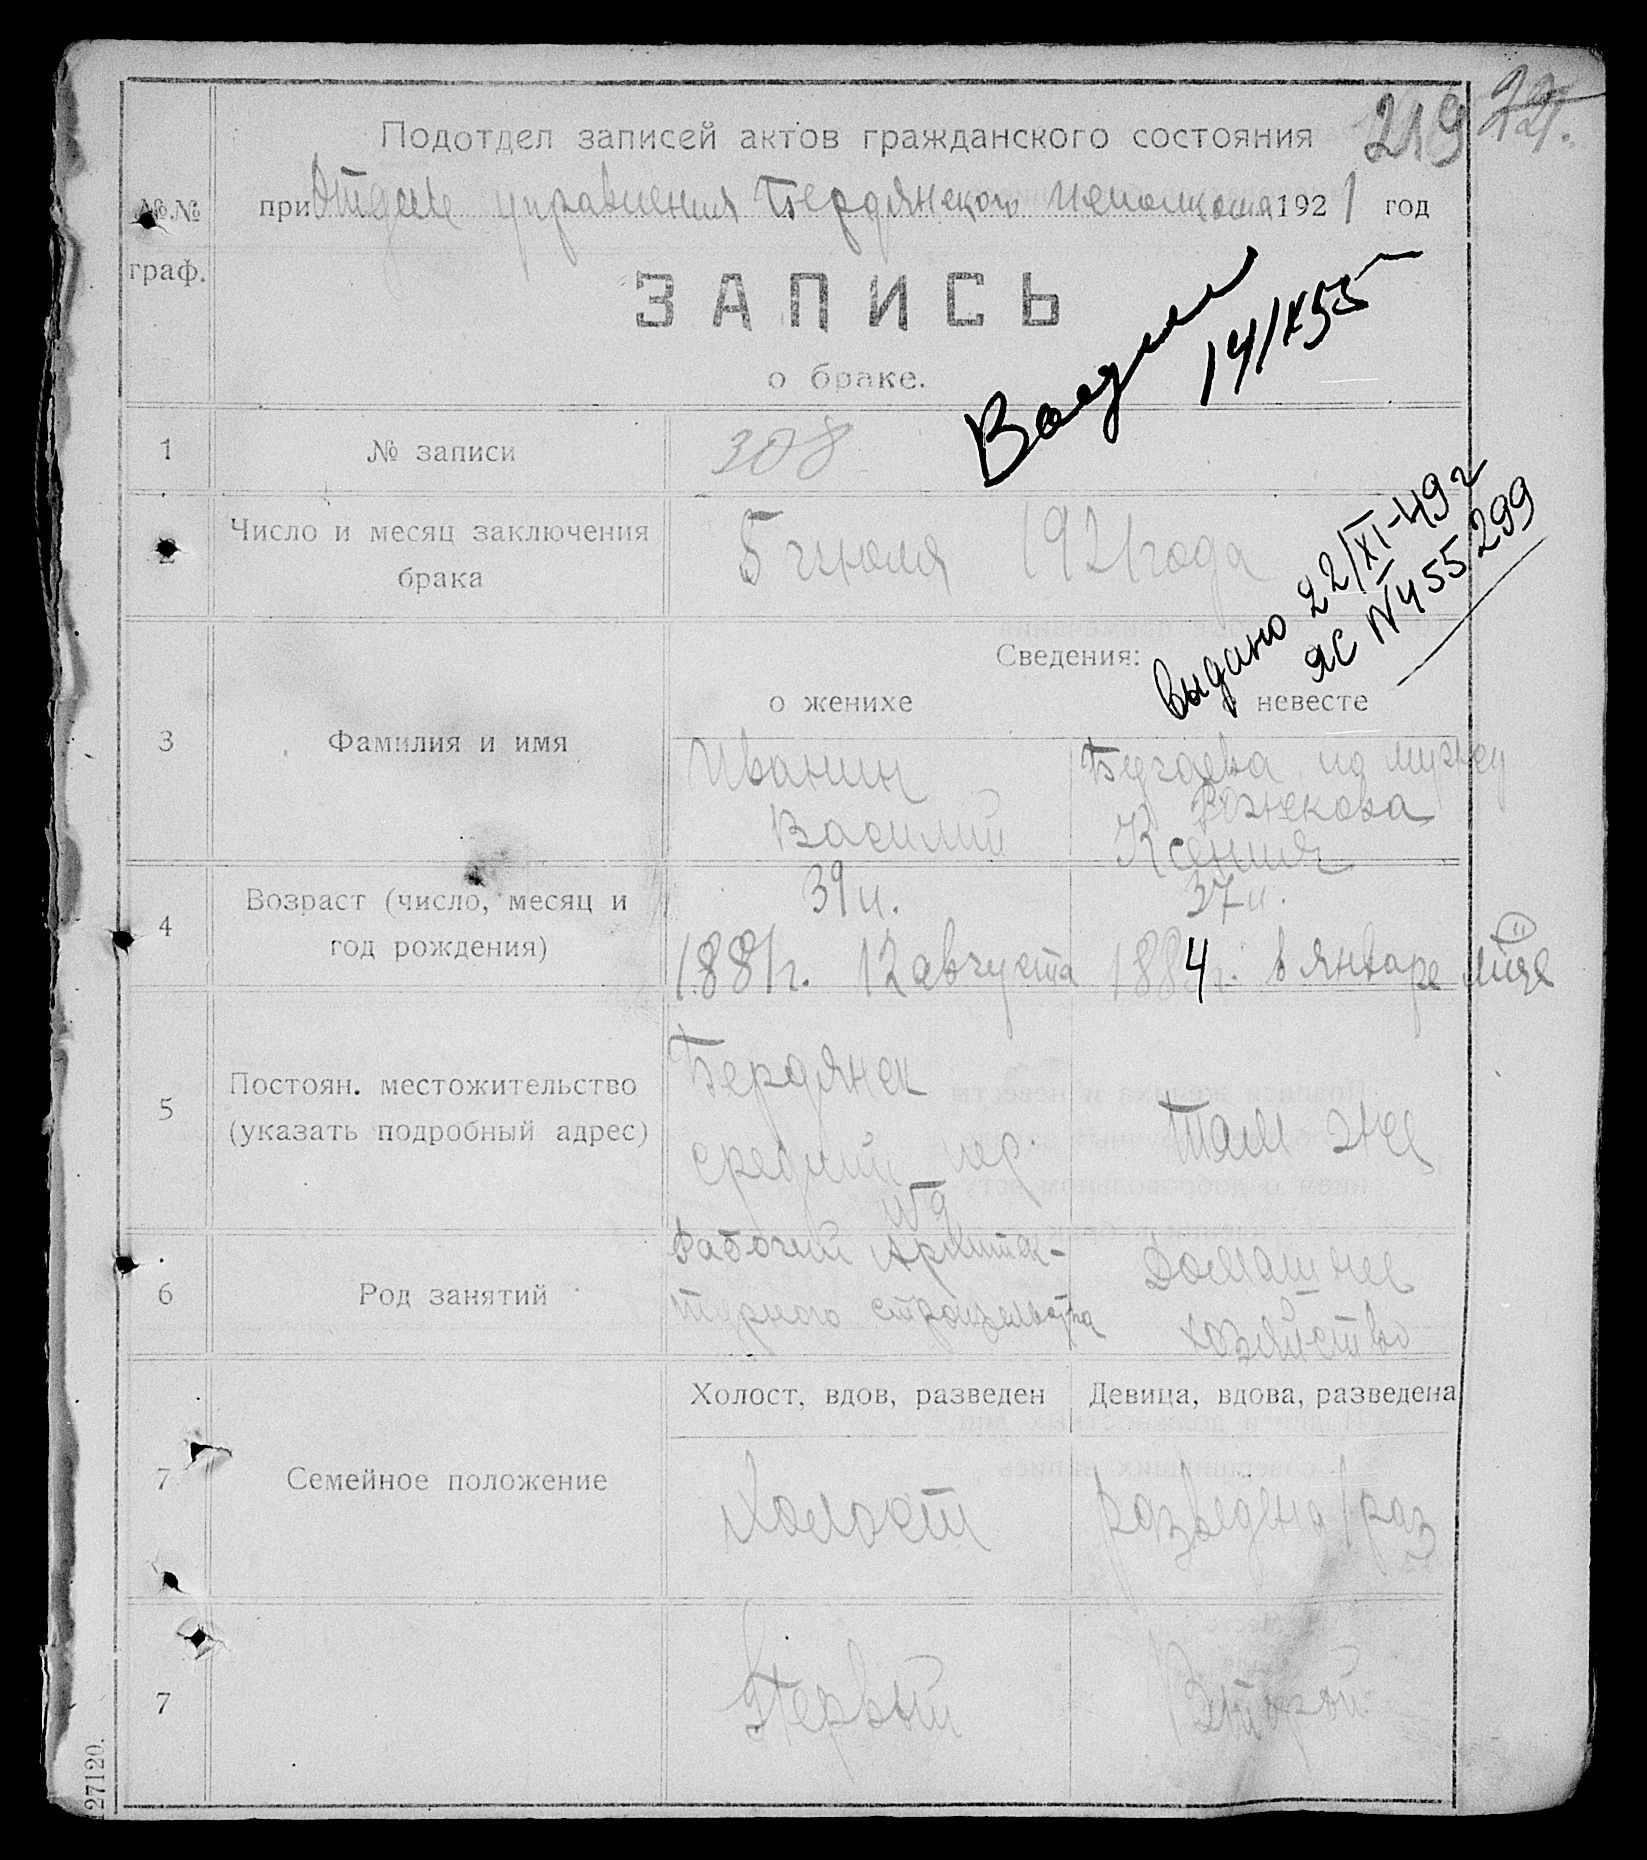 219
Подотдел записей актов гражданского состояния
№.№ при Отделе управления Бердянского исполкома 1921 год
граф.
ЗАПИСЬ
о браке.
14/IX 55
1 № записи 308
2 Число и месяц заключения
брака
5 июля 1921 года
выдано 22/XI-49 г
ЯС N 455299
Сведения:
о женихе невесте
3 Фамилия и имя
Иванин
Василий
по мужу
Рожкова
Ксения
4 Возраст (число, месяц и
год рождения)
39 л. 37 л.
1881 г. 12 августа 1884 г. в январе м-це
5 Постоян. местожительство
(указать подробный адрес)
Бердянск
средний пер.
№ 9
там же
6 Род занятий
Рабочий
строительства
Домашнее
хозяйство
Холост, вдов, разведен Девица, вдова, разведена
7 Семейное положение
Холост разведена 1 раз
7 Первый Второй
27120.